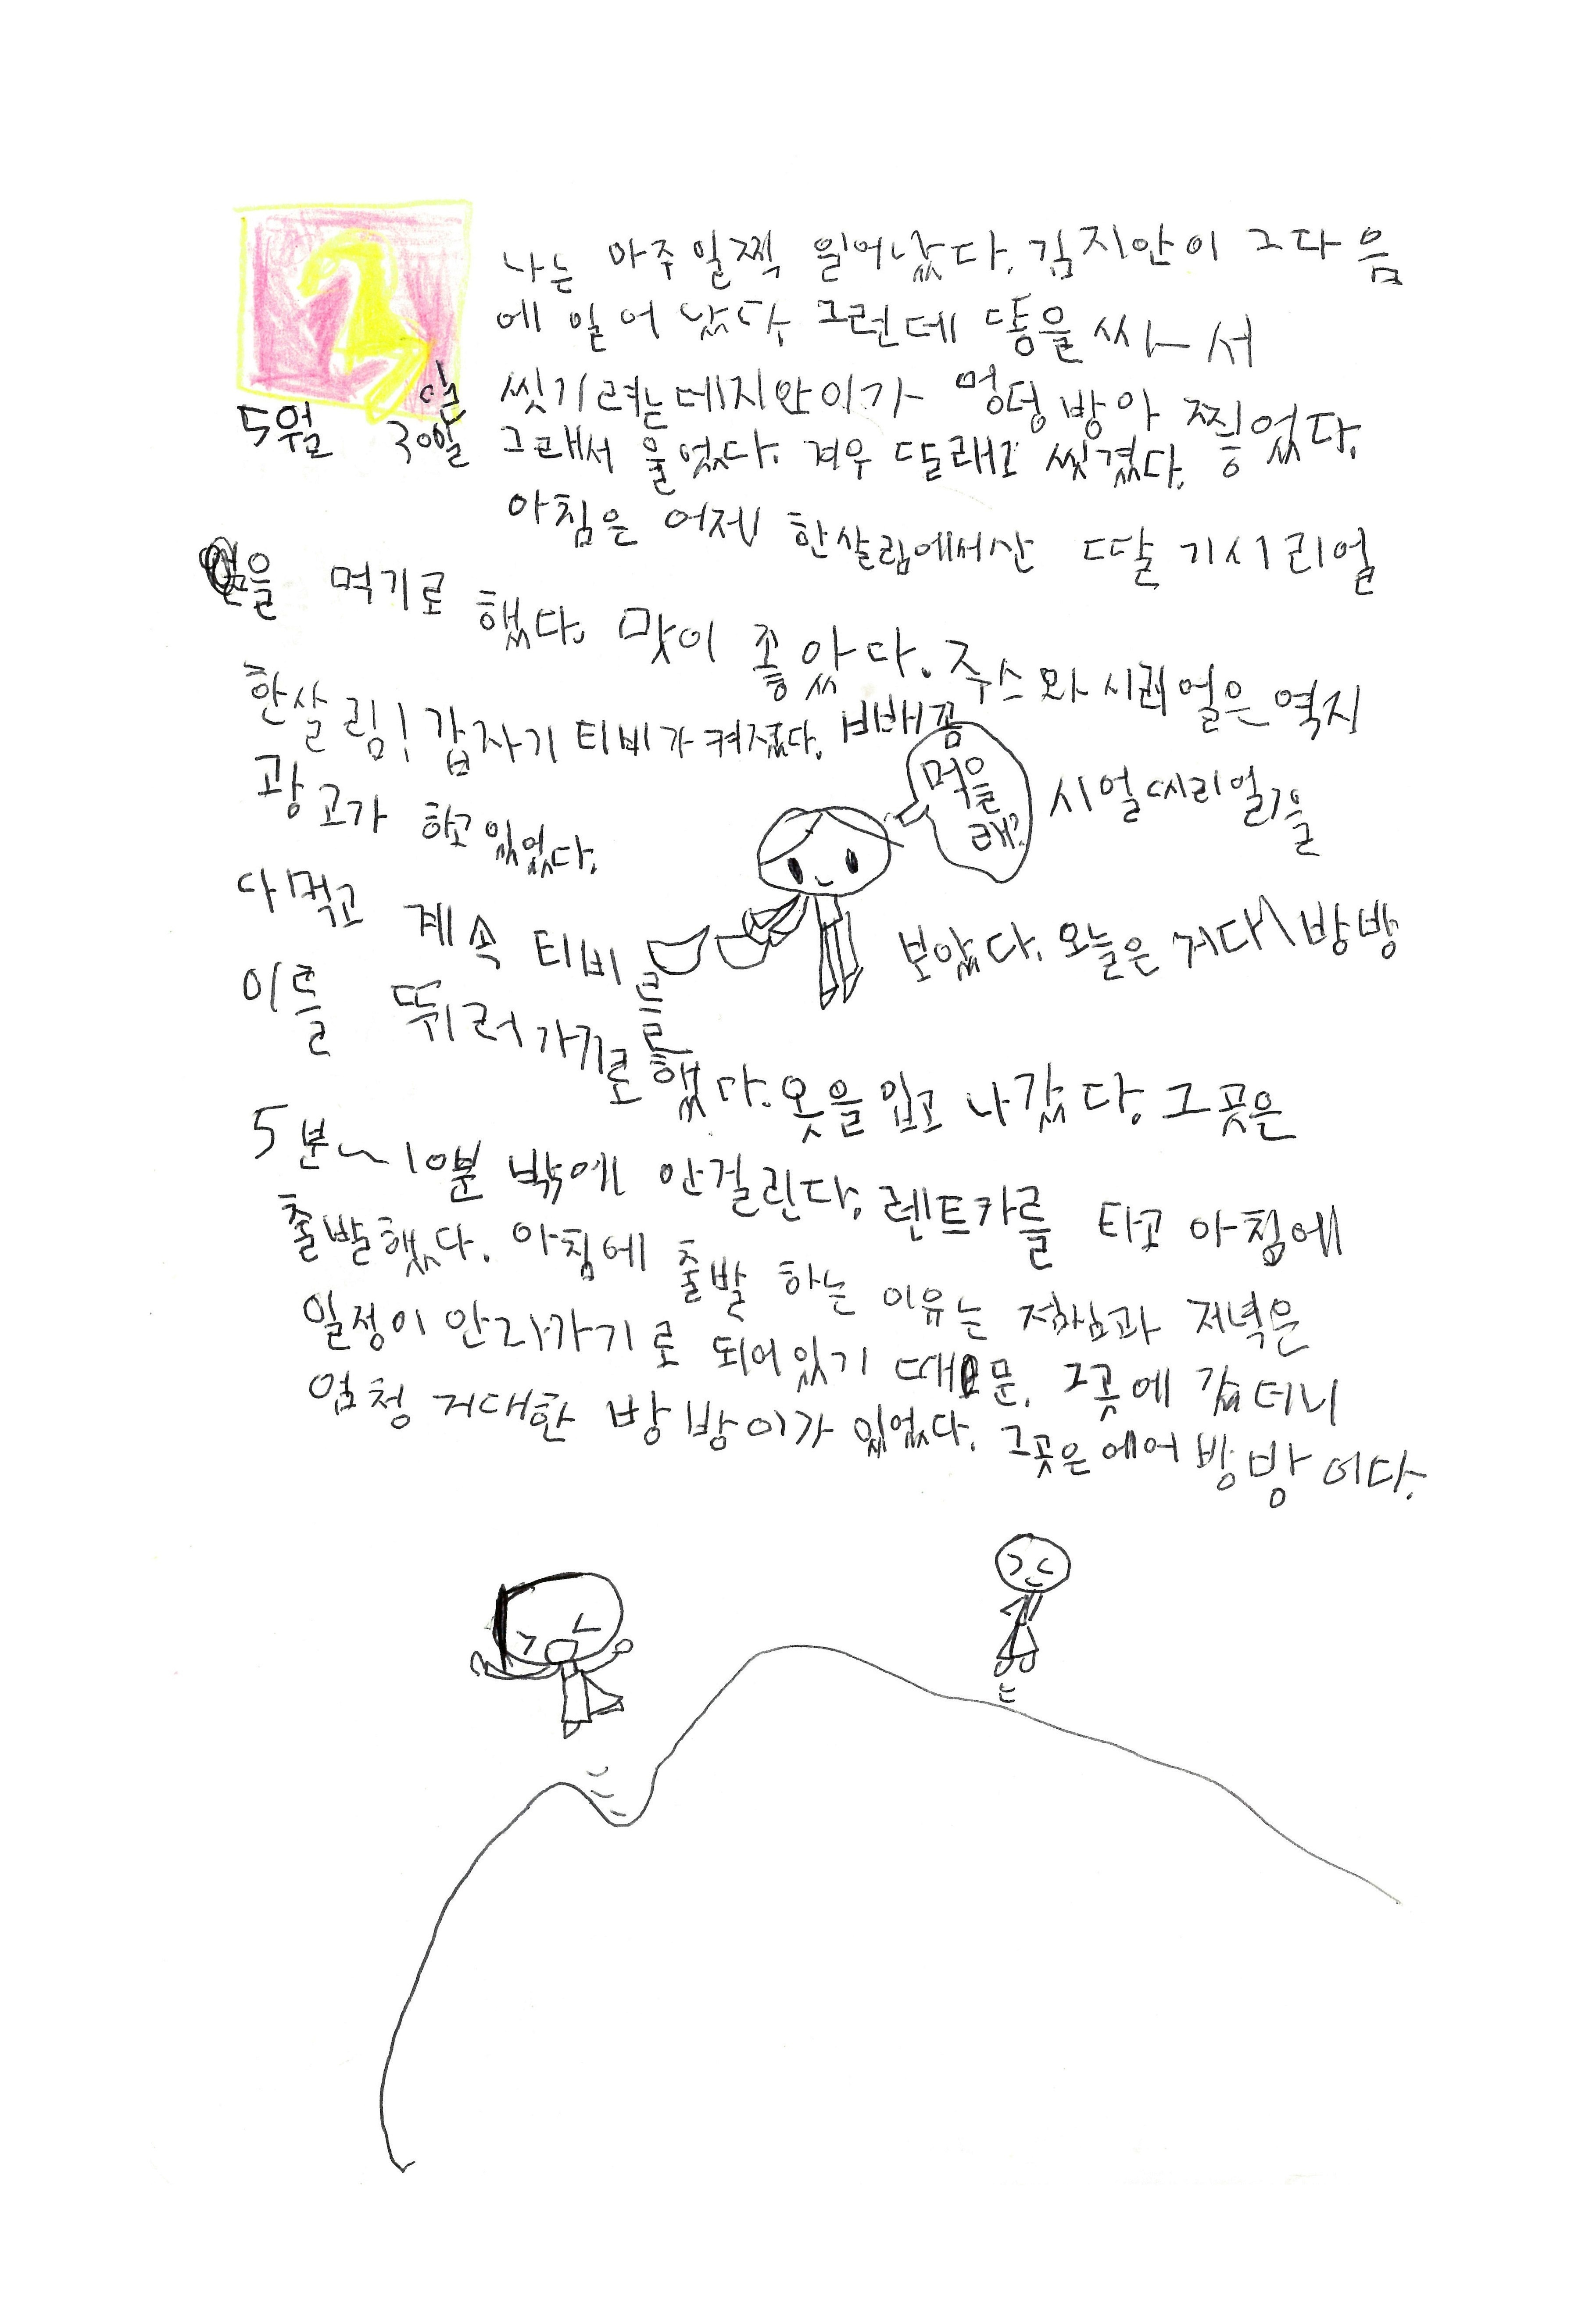 나는 아주 일찍 일어났다. 김지안이 그다음
에 일어 났다. 그런데 똥을 싸서
씻기려는데 지안이가 엉덩방아 찧었다.
5월 30일
그래서 울었다. 겨우 달래고 씻겼다.
아침은 어제 한살림에서산 딸기시리얼
을 먹기로 했다. 맛이 좋았다. 주스와 시리얼은 역지
한살림! 갑자기 티비가 켜졌다. 빼꼼
광고가 하고 있었다.
먹을
래?
시얼 씨리얼을
다먹고 계속 티비를 보았다. 오늘은 거대 방방
이를 뛰러가기로 했다. 옷을 입고 나갔다. 그곳은
5분~10분 밖에 안걸린다. 렌트카를 타고 아침에
출발했다. 아침에 출발 하는 이유는 점심과 저녁은
일정이 안나가기로 되어있기 때문. 그곳에 갔더니
엄청 거대한 방방이가 있었다. 그곳은 에어방방 이다.